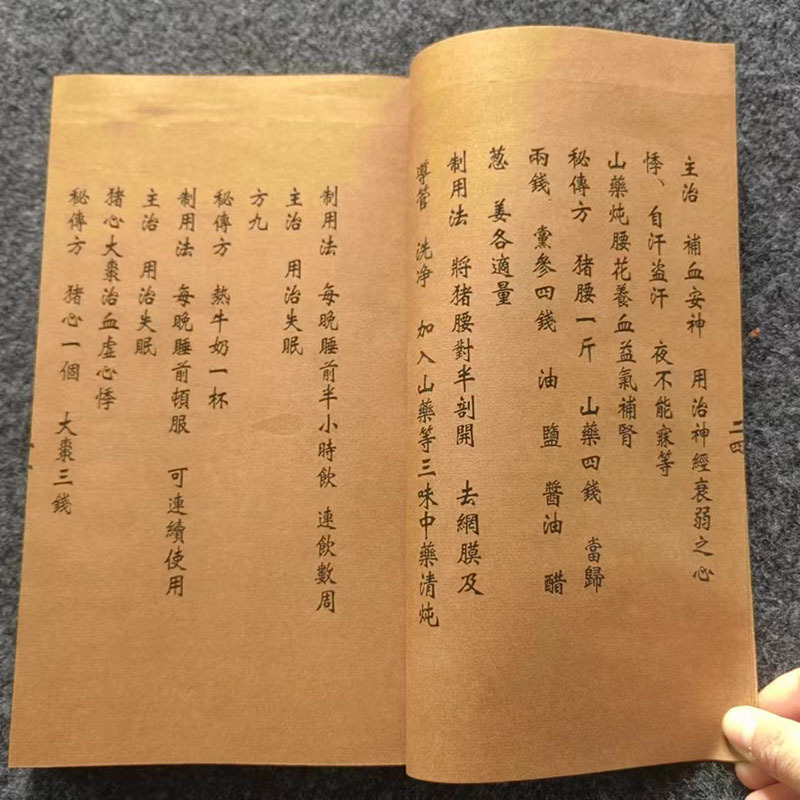 主治 補血安神 用治神經衰弱之心
悸、自汗盜汗 夜不能寐等
山藥炖腰花養血益氣補腎
秘傳方 猪腰一斤 山藥四錢 當歸
兩錢 黨參四錢 油 鹽 醬油 醋
葱 姜各適量
制用法 將猪腰對半剖開 去網膜及
導管 洗净 加入山藥等三味中藥清炖
二四
制用法 每晚睡前半小時飲 連飲數周
主治 用治失眠
方九
秘傳方 熱牛奶一杯
制用法 每晚睡前頓服 可連續使用
主治 用治失眠
猪心大棗治血虛心悸
秘傳方 猪心一個 大棗三錢